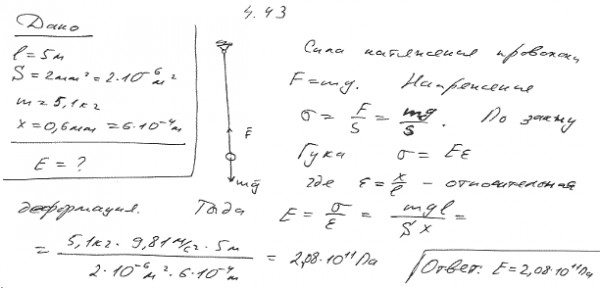 4.43
Дано
l = 5 м
S = 2 мм² = 2·10⁻⁶ м²
m = 5,1 кг
x = 0,6 мм = 6·10⁻⁴ м
E = ?
F
mg
Сила натяжения проволоки
F = mg. Напряжение
σ = F/S = mg/S. По закону
Гука σ = Eε
где ε = x/l – относительная
деформация. Тогда E = σ/ε = mgl/Sx =
= 5,1 кг · 9,81 м/с² · 5 м / 2·10⁻⁶ м² · 6·10⁻⁴ м = 2,08·10¹¹ Па
Ответ: E = 2,08·10¹¹ Па